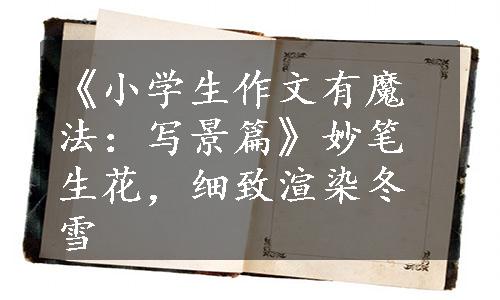 《小学生作文有魔
法：写景篇》妙笔
生花，细致渲染冬
雪